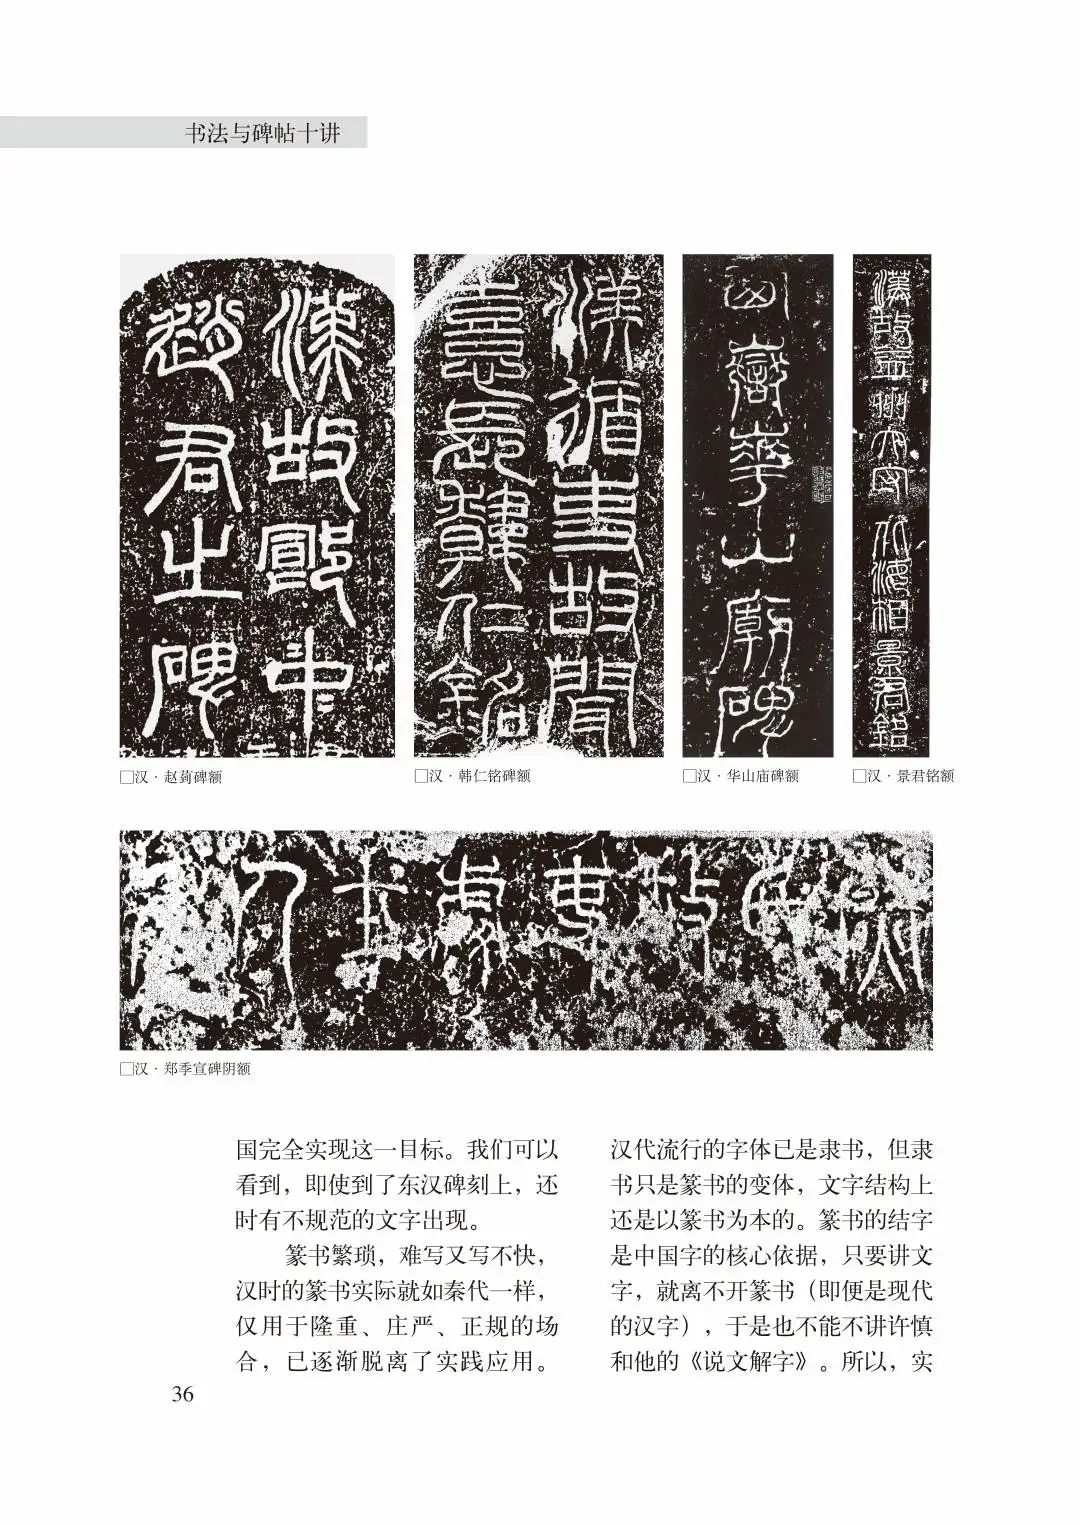 书法与碑帖十讲
漢故郎中
趙君之碑
漢循吏故聞
憙長韓仁銘
西嶽華山廟碑
漢故益州太守北海相景君銘
□汉·赵菿碑额
□汉·韩仁铭碑额
□汉·华山庙碑额
□汉·景君铭额
□汉·郑季宣碑阴额
国完全实现这一目标。我们可以
看到，即使到了东汉碑刻上，还
时有不规范的文字出现。
篆书繁琐，难写又写不快，
汉时的篆书实际就如秦代一样，
仅用于隆重、庄严、正规的场
合，已逐渐脱离了实践应用。
汉代流行的字体已是隶书，但隶
书只是篆书的变体，文字结构上
还是以篆书为本的。篆书的结字
是中国字的核心依据，只要讲文
字，就离不开篆书（即便是现代
的汉字），于是也不能不讲许慎
和他的《说文解字》。所以，实
36